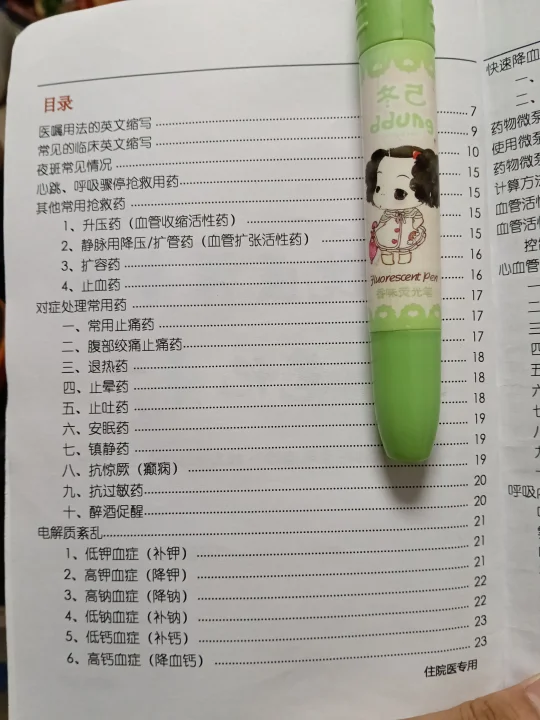 目录
医嘱用法的英文缩写 7
常见的临床英文缩写 9
夜班常见情况 10
心跳、呼吸骤停抢救用药 15
其他常用抢救药 15
1、升压药（血管收缩活性药） 15
2、静脉用降压/扩管药（血管扩张活性药） 15
3、扩容药 16
4、止血药 16
对症处理常用药 17
一、常用止痛药 17
二、腹部绞痛止痛药 17
三、退热药 18
四、止晕药 18
五、止吐药 18
六、安眠药 19
七、镇静药 19
八、抗惊厥（癫痫） 19
九、抗过敏药 20
十、醉酒促醒 20
电解质紊乱 21
1、低钾血症（补钾） 21
2、高钾血症（降钾） 21
3、高钠血症（降钠） 22
4、低钠血症（补钠） 22
5、低钙血症（补钙） 23
6、高钙血症（降血钙） 23
住院医专用
冬己
ddung
Fluorescent pen
香味荧光笔
快速降血
一、
二、
药物微泵
使用微泵
药物微泵
计算方法
血管活
血管活
心血管
四
五
六
呼吸